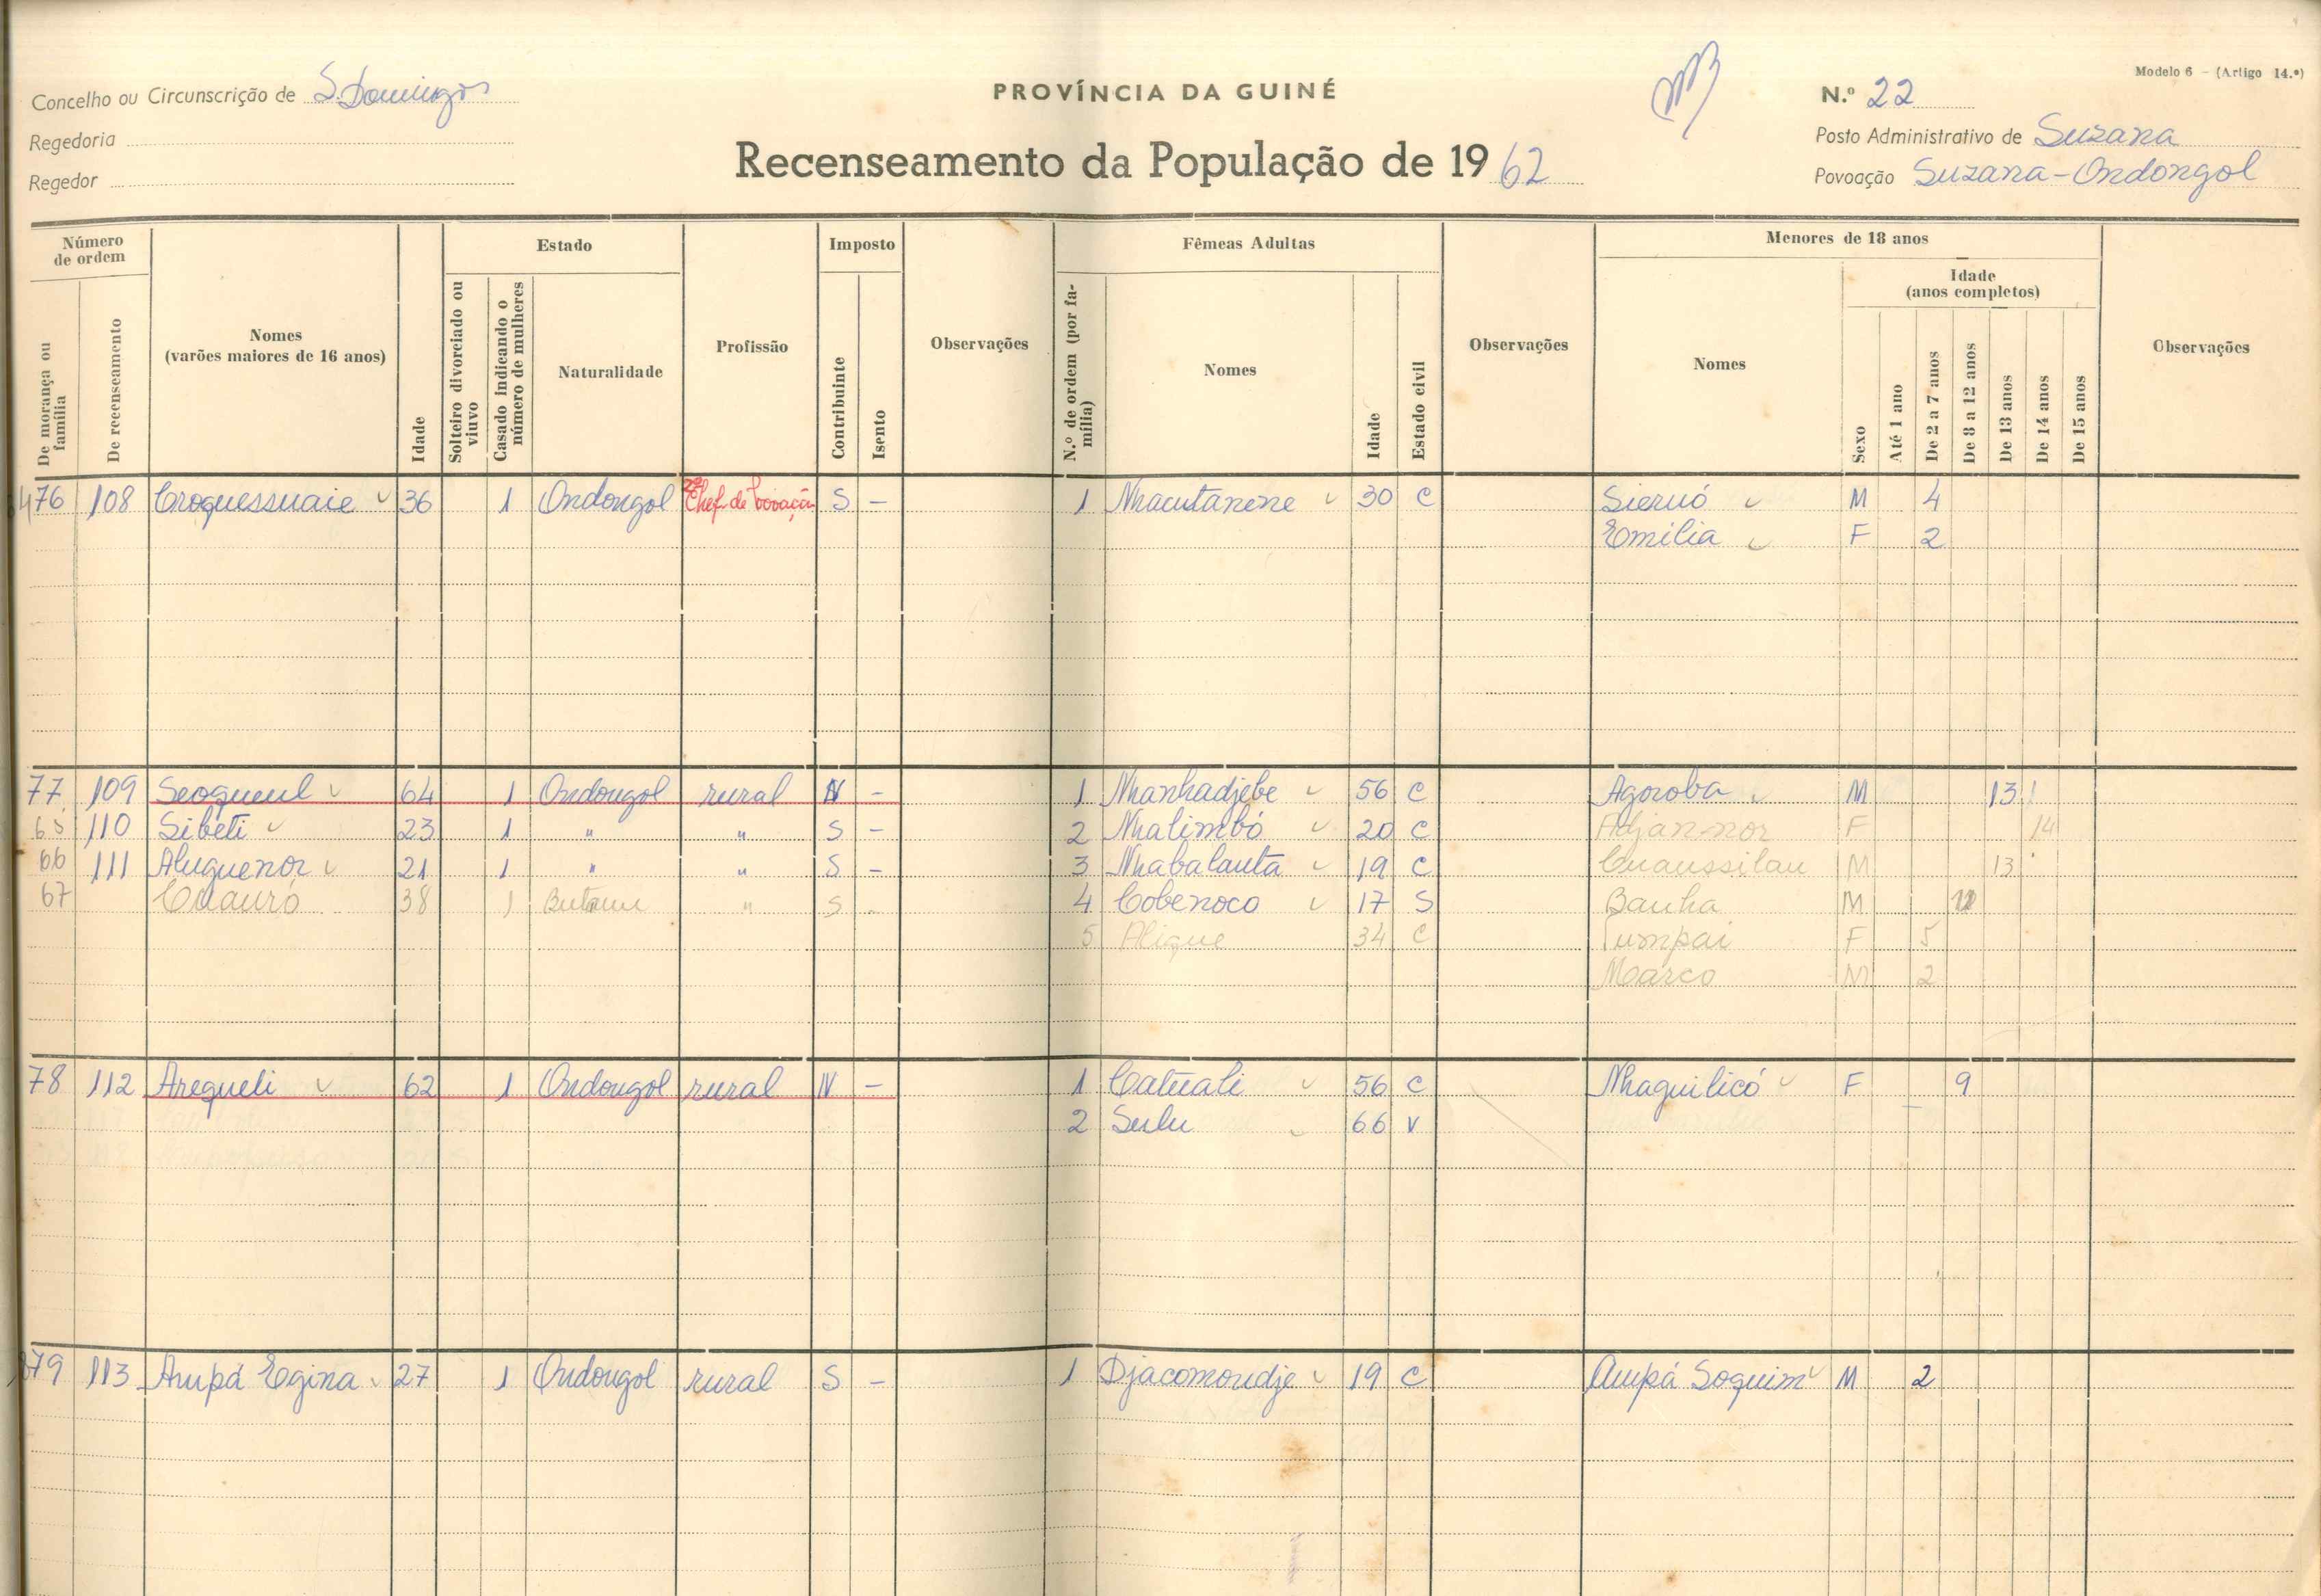 Modelo 6 - (Artigo 14.º)
Concelho ou Circunscrição de S. Domingos
PROVÍNCIA DA GUINÉ
N.º 22
Regedoria
Posto Administrativo de Suzana
Regedor
Recenseamento da População de 1962
Povoação Suzana-Ondongol
Número de ordem
De morança ou família
De recenseamento
Nomes
(varões maiores de 16 anos)
Idade
Estado
Solteiro divorciado ou viuvo
Casado indicando o número de mulheres
Naturalidade
Profissão
Imposto
Contribuinte
Isento
Observações
Fêmeas Adultas
N.º de ordem (por família)
Nomes
Idade
Estado civil
Observações
Menores de 18 anos
Nomes
Sexo
Idade
(anos completos)
Até 1 ano
De 2 a 7 anos
De 8 a 12 anos
De 13 anos
De 14 anos
De 15 anos
Observações
476 108 Croquessuaie 36 1 Ondongol Chef. de S - 1 Nhacutanene 30 C Sieruó M 4
Emilia F 2
77 109 Seogueul 64 1 Ondongol rural N - 1 Nhanhadjebe 56 C Agoroba M 13
65 110 Sibeti 23 1 " " S - 2 Nhalimbó 20 C Adjannor F 14
66 111 Aluguenor 21 1 " " S - 3 Nhabalauta 19 C Cuaussilau M 13
67 Cuauró 38 1 " S 4 Cobenoco 17 S Bauha M
5 Alique 34 C Tumpai F 5
Marco M 2
78 112 Arequeli 62 1 Ondongol rural N - 1 Catuali 56 C Nhaquilicó F 9
2 Sulu 66 V
79 113 Aupá Egina 27 1 Ondongol rural S - 1 Djacomoudje 19 C Aupá Soquim M 2